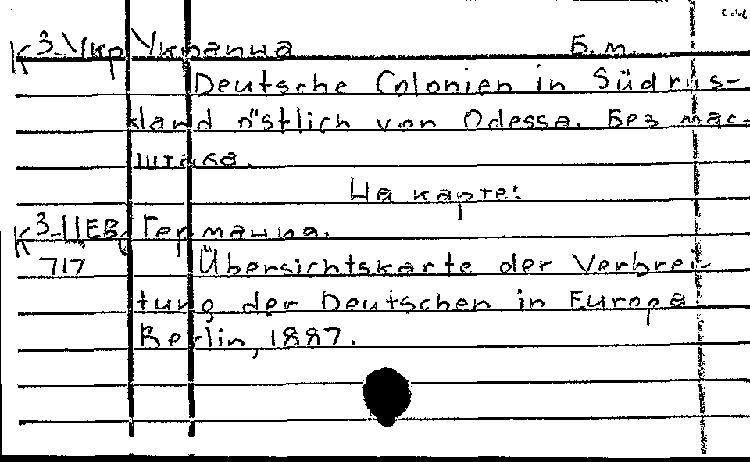 К3-Укр Украина Б.м.
Deutsche Colonien in Südrus-
land östlich von Odessa. Без мас-
штаба.
На карте:
К3-ЦЕВр Германия.
717 Übersichtskarte der Verbrei-
tung der Deutschen in Europa
Berlin, 1887.